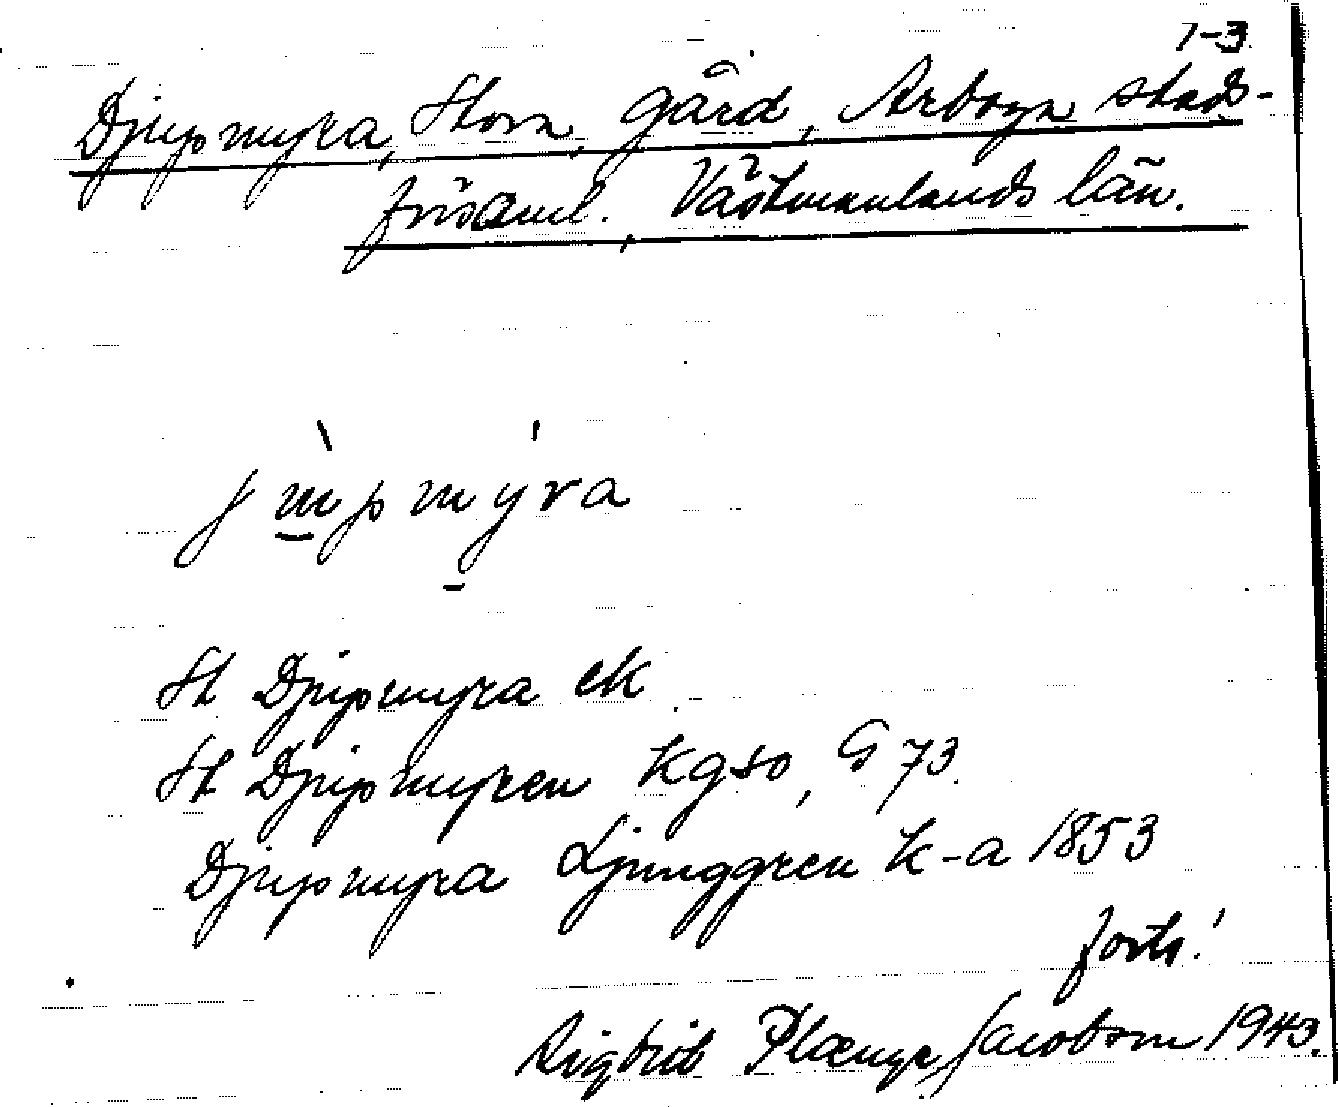 1-3
Djupmyra, Stora, gård, Arboga stads-
förs​aml. Västmanlands län.
jùpmy̍ra
St Djupmyra ek
St Djupmyren kgso, G 73.
Djupmyra Ljunggren k-a 1853
forts.!
Rigbrit Plænge Jacobson 1943.